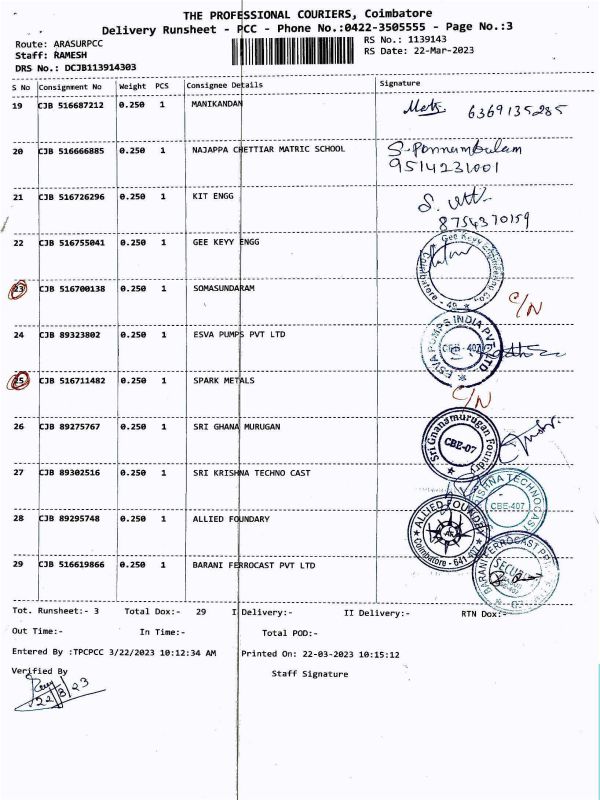 THE PROFESSIONAL COURIERS, Coimbatore
Delivery Runsheet - PCC - Phone No.:0422-3505555 - Page No.:3
Route: ARASURPCC
RS No.: 1139143
Staff: RAMESH
RS Date: 22-Mar-2023
DRS No.: DCJB113914303
S No Consignment No Weight PCS Consignee Details Signature
19 CJB 516687212 0.250 1 MANIKANDAN 6369135285
20 CJB 516666885 0.250 1 NAJAPPA CHETTIAR MATRIC SCHOOL S. Ponnambulam
9514231001
21 CJB 516726296 0.250 1 KIT ENGG
8754370159
22 CJB 516755041 0.250 1 GEE KEYY ENGG
Gee Keyy Engineering Co
Coimbatore - 49
23 CJB 516700138 0.250 1 SOMASUNDARAM C/N
24 CJB 89323802 0.250 1 ESVA PUMPS PVT LTD
ESVA PUMPS INDIA PVT LTD
CBE - 407
25 CJB 516711482 0.250 1 SPARK METALS C/N
26 CJB 89275767 0.250 1 SRI GHANA MURUGAN
Sri Gnanamurugan Foundry
CBE-07
27 CJB 89302516 0.250 1 SRI KRISHNA TECHNO CAST
TECHNO CAST
CBE-407
28 CJB 89295748 0.250 1 ALLIED FOUNDARY
ALLIED FOUNDRY
Coimbatore - 641 407
29 CJB 516619866 0.250 1 BARANI FERROCAST PVT LTD
BARANI FERROCAST
SECURITY
Tot. Runsheet:- 3 Total Dox:- 29 I Delivery:- II Delivery:- RTN Dox:-
Out Time:- In Time:- Total POD:-
Entered By :TPCPCC 3/22/2023 10:12:34 AM Printed On: 22-03-2023 10:15:12
Verified By
Staff Signature
22/3/23